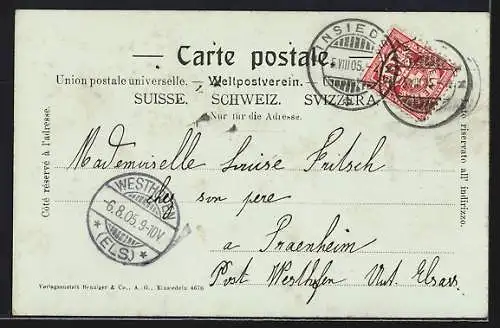 Carte postale.
Union postale universelle. — Weltpostverein. —
SUISSE. SCHWEIZ. SVIZZERA.
Nur für die Adresse.
Côté réservé à l'adresse.
Lato riservato all' indirizzo.
NSIEDE
VIII 05
Mademoiselle Louise Fritsch
chez son pere
a Traenheim
Post Westhofen Unt. Elsass
WESTHOFEN
-6.8.05.9-10V.
* (ELS) *
Verlagsanstalt Benziger & Co., A. G., Einsiedeln 4676